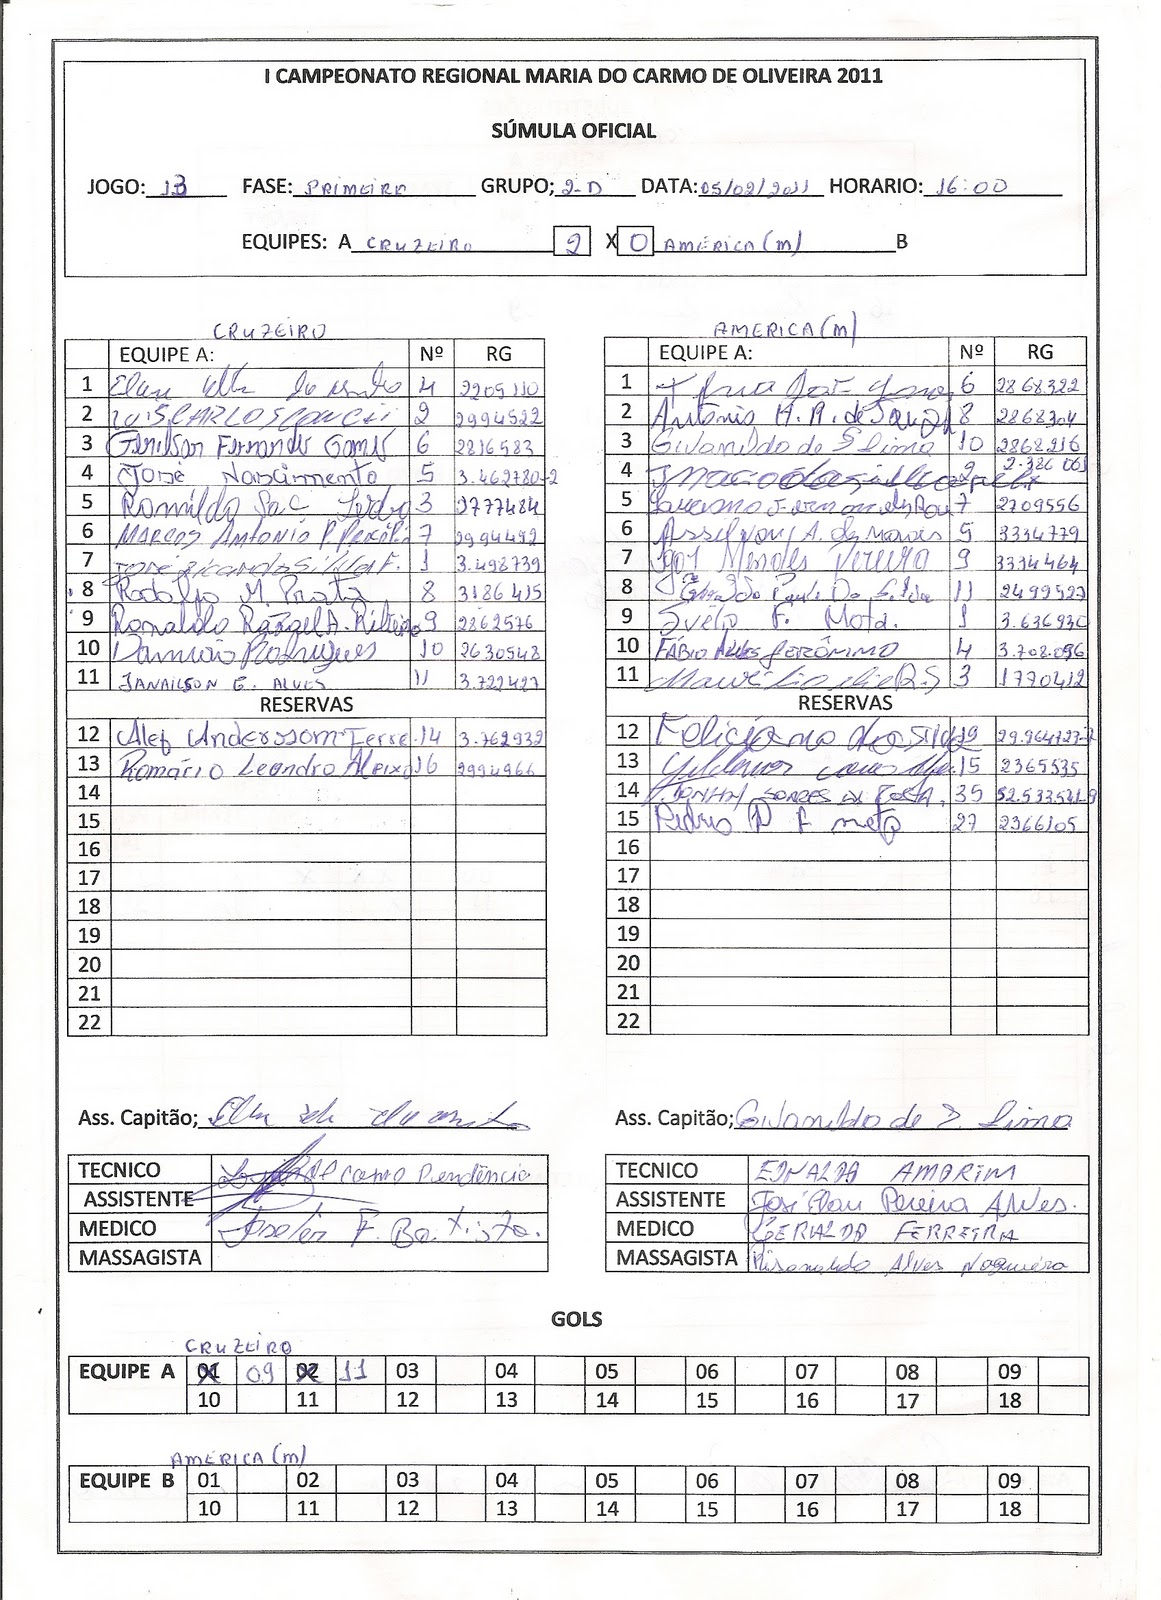 I CAMPEONATO REGIONAL MARIA DO CARMO DE OLIVEIRA 2011
SÚMULA OFICIAL
JOGO: 13 FASE: PRIMEIRA GRUPO; 2-D DATA: 05/02/2011 HORARIO: 16:00
EQUIPES: A CRUZEIRO 2 X 0 AMÉRICA (m) B
CRUZEIRO
EQUIPE A: Nº RG
1 4 2205110
2 LUIS CARLOS 2 2994522
3 Genilson Fernandes Gomes 6 2816583
4 José Nascimento 5 3.462780-2
5 Romildo 3 2777484
6 MARCOS ANTONIO P. 7 2994492
7 JOSÉ RICARDO SILVA F. 1 3.498739
8 Rodolfo M. Prata 8 3186415
9 Ronaldo Rangel A. Ribeiro 9 2862576
10 Damião Rodrigues 10 2630548
11 JANAILSON E. ALVES 11 3.722427
RESERVAS
12 Alef Anderssom Ferre. 14 3.762932
13 Romário Leandro Aleixo 16 2994966
14
15
16
17
18
19
20
21
22
AMERICA (m)
EQUIPE A: Nº RG
1 6 2868322
2 Antonio M. A. de Souza 8 2868304
3 Givanildo de S Lima 10 2868216
4 2 2.386 061
5 7 2709556
6 A. de Morais 5 3334779
7 Igor Mendes Pereira 9 3334464
8 11 2499527
9 F. Mota. 1 3.636930
10 FÁBIO ALVES JERÔNIMO 4 3.702.096
11 3 1770412
RESERVAS
12 Feliciano da Silva 19
13 15 2365535
14 SOARES DA COSTA, 35 52.533.541-9
15 Pedro P F neto 27 2366105
16
17
18
19
20
21
22
Ass. Capitão;
Ass. Capitão; Givanildo de S Lima
TECNICO
ASSISTENTE
MEDICO F. Batista.
MASSAGISTA
TECNICO EDNALDO AMORIM
ASSISTENTE José Elan Pereira Alves.
MEDICO GERALDO FERREIRA
MASSAGISTA Risonaldo Alves Nogueira
GOLS
CRUZEIRO
EQUIPE A 01 09 02 11 03 04 05 06 07 08 09
10 11 12 13 14 15 16 17 18
AMÉRICA (m)
EQUIPE B 01 02 03 04 05 06 07 08 09
10 11 12 13 14 15 16 17 18